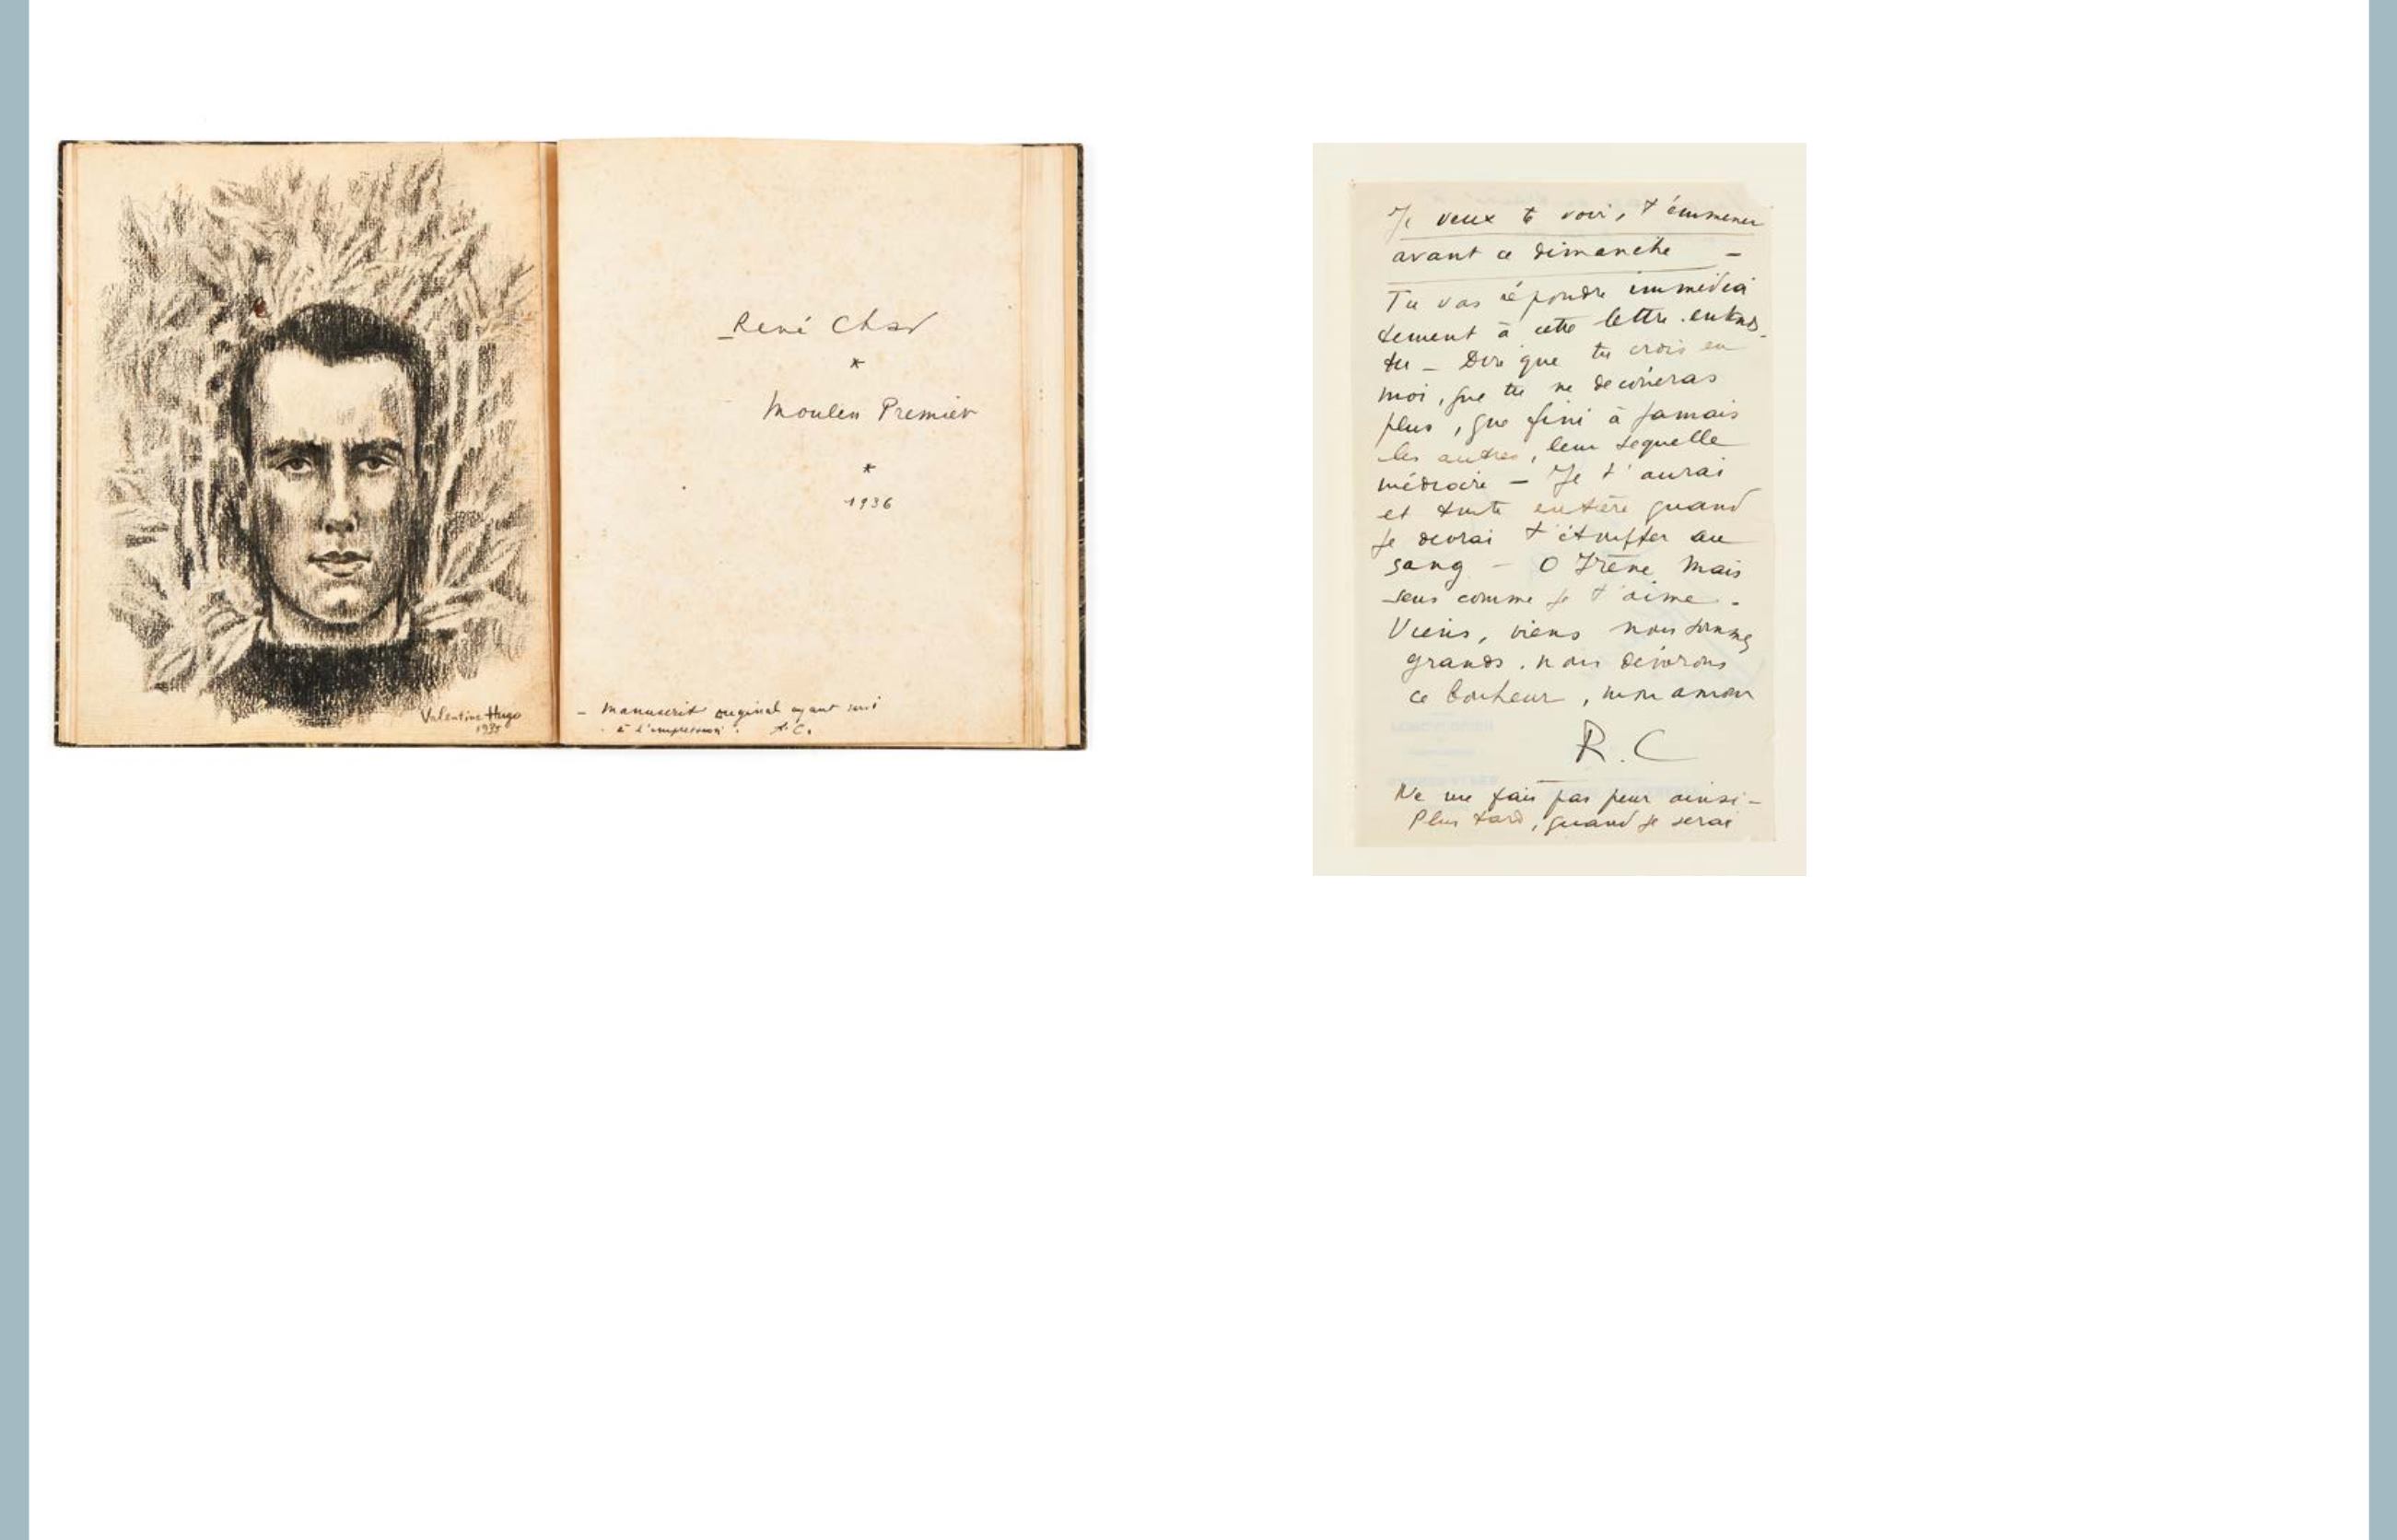 Valentine Hugo
1935
René Char
*
Moulin Premier
*
1936
– manuscrit original ayant servi
à l'impression. R.C.
Je veux te voir, t'emmener
avant ce dimanche –
Tu vas répondre immédia
tement à cette lettre. enten-
du – Dire que tu crois en
moi, que tu ne
plus, que fini à jamais
les autres, leur sequelle
médiocre – Je t'aurai
et toute entière quand
je devrai t'étouffer au
sang – O Irène mais
sens comme je t'aime.
Viens, viens nous sommes
grands. nous
ce bonheur, mon amour
R.C
Ne me fais pas peur ainsi –
Plus tard, quand je serai